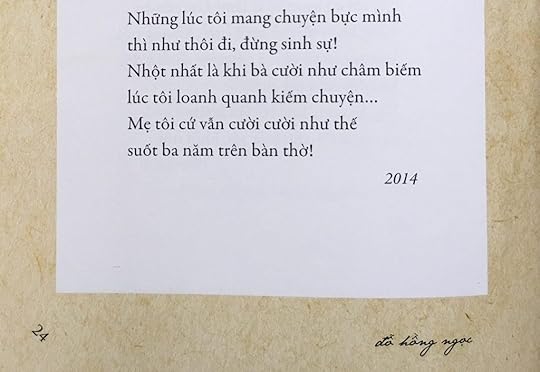 Những lúc tôi mang chuyện bực mình
thì như thôi đi, đừng sinh sự!
Nhột nhất là khi bà cười như châm biếm
lúc tôi loanh quanh kiếm chuyện...
Mẹ tôi cứ vẫn cười cười như thế
suốt ba năm trên bàn thờ!
2014
24
đỗ hồng ngọc